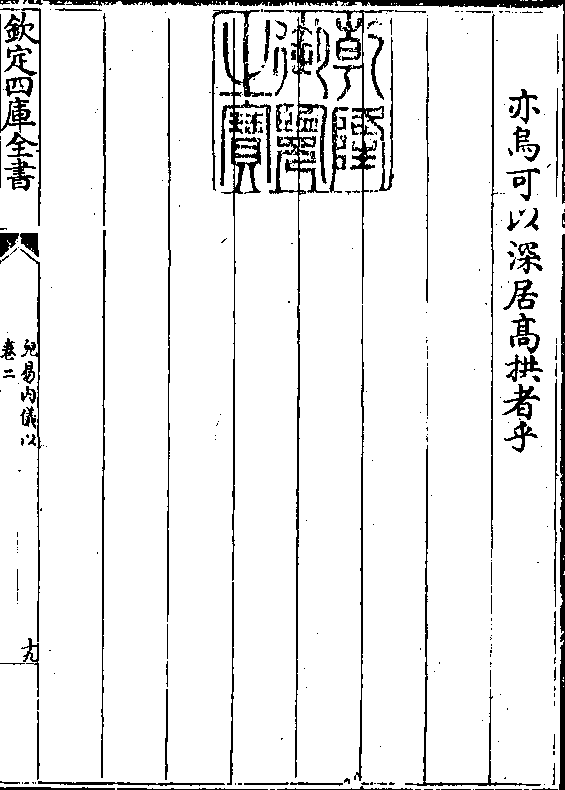 亦烏可以深居高拱者乎
乾隆御覽之寶
欽定四庫全書
兒易內儀以
卷二
十九